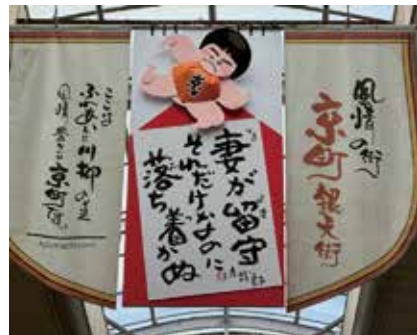 風情の街へ
京町銀天街
妻が留守
それだけなのに
落ち着かぬ
ここは
ふれあいと川柳の道
京町